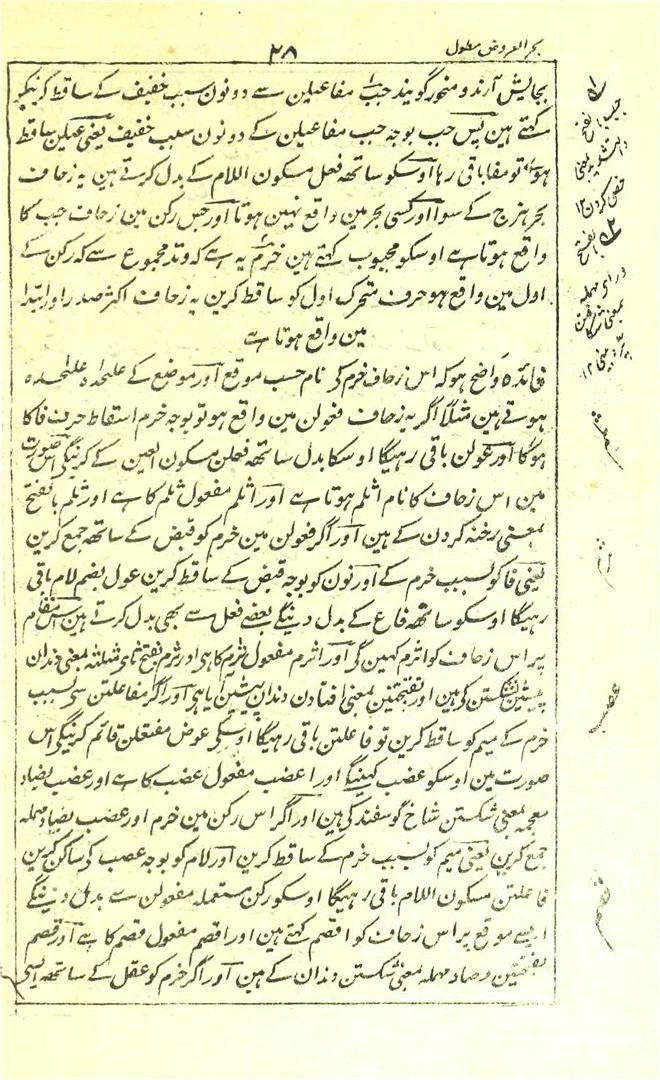 بحر العروض مطول
۲۸
بجایش آرند و منحور گویند جب مفاعیلن سے دونون سبب خفیف کے ساقط کرنیکو
کہتے ہین پس جب بوجہ جب مفاعیلن کے دونون سبب خفیف یعنی عیلن ساقط
ہوے تو مفا باقی رہا اوسکو ساتھ فعل بسکون اللام کے بدل کرتے ہین یہ زحاف
بحر ہزج کے سوا اور کسی بحر مین واقع نہین ہوتا اور جس رکن مین زحاف جب کا
واقع ہوتا ہے اوسکو مجبوب کہتے ہین خرم یہ ہے کہ وتد مجموع سے کہ رکن کے
اول مین واقع ہو حرف متحرک اول کو ساقط کرین یہ زحاف اکثر صدر اور ابتدا
مین واقع ہوتا ہے
فائدہ واضح ہو کہ اس زحاف خرم کے نام حسب موقع اور موضع کے علٰحدہ علٰحدہ
ہوتے ہین مثلاً اگر یہ زحاف فعولن مین واقع ہو تو بوجہ خرم اسقاط حرف فا کا
ہوگا اور عولن باقی رہیگا اوسکا بدل ساتھ فعلن بسکون العین کے کرینگے اس صورت
مین اس زحاف کا نام اثلم ہوتا ہے اور اثلم مفعول ثلم کا ہے اور ثلم بالفتح
بمعنی رخنہ کردن کے ہین اور اگر فعولن مین خرم کو قبض کے ساتھ جمع کرین
یعنی فا کو بسبب خرم کے اور نون کو بوجہ قبض کے ساقط کرین عول بضم لام باقی
رہیگا اوسکو ساتھ فاع کے بدل دینگے بعضے فعل سے بھی بدل کرتے ہین اس مقام
پر اس زحاف کو اثرم کہین گے اور اثرم مفعول ثرم کا ہی اور ثرم بفتح ثای مثلثہ بمعنی دندان
پیشین شکستن کے ہین اور بفتحتین بمعنی افتادن دندان پیشین آیا ہی اور اگر مفاعلتن سے بسبب
خرم کے میم کو ساقط کرین تو فاعلتن باقی رہیگا اوسکی عوض مفتعلن قائم کرینگے اس
صورت مین اوسکو عضب کہینگے اور اعضب مفعول عضب کا ہے اور عضب بضاد
معجمہ بمعنی شکستن شاخ گوسفند کے ہین اور اگر اس رکن مین خرم اور عصب بصاد مہملہ
جمع کرین یعنی میم کو بسبب خرم کے ساقط کرین اور لام کو بوجہ عصب کے ساکن کرین
فاعلتن بسکون اللام باقی رہیگا اوسکو رکن مستعملہ مفعولن سے بدل دینگے
ایسے موقع پر اس زحاف کو اقصم کہتے ہین اور اقصم مفعول قصم کا ہے اور قصم
بفتحتین و صاد مہملہ بمعنی شکستن دندان کے ہین اور اگر خرم کو عقل کے ساتھ ایسے
جب بالفتح
بمعنی
خصی کردن ۱۲
بالفتح
و رای مہملہ
بمعنی شگافتن
بینی ۱۲
ثلم
ثرم
عضب
قصم